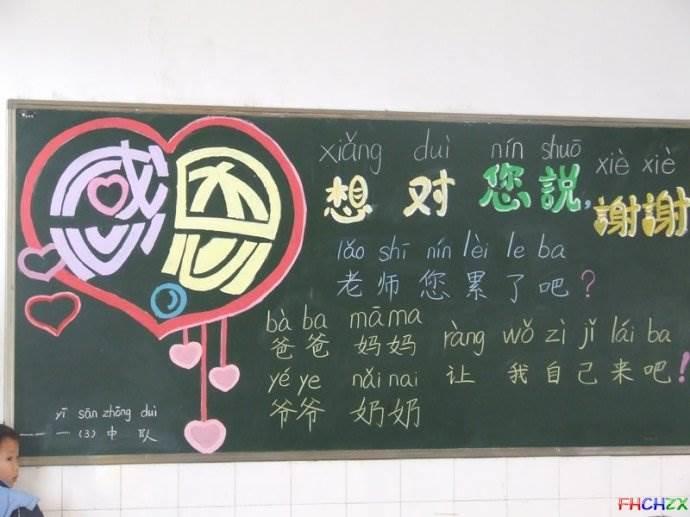 感恩
xiǎng duì nín shuō xiè xiè
想对您説,謝謝
lǎo shī nín lèi le ba
老师您累了吧?
bà ba māma
爸爸 妈妈
ràng wǒ zì jǐ lái ba
让我自己来吧!
yé ye nǎi nai
爷爷 奶奶
yī sān zhōng duì
一(3)中队
FHCHZX